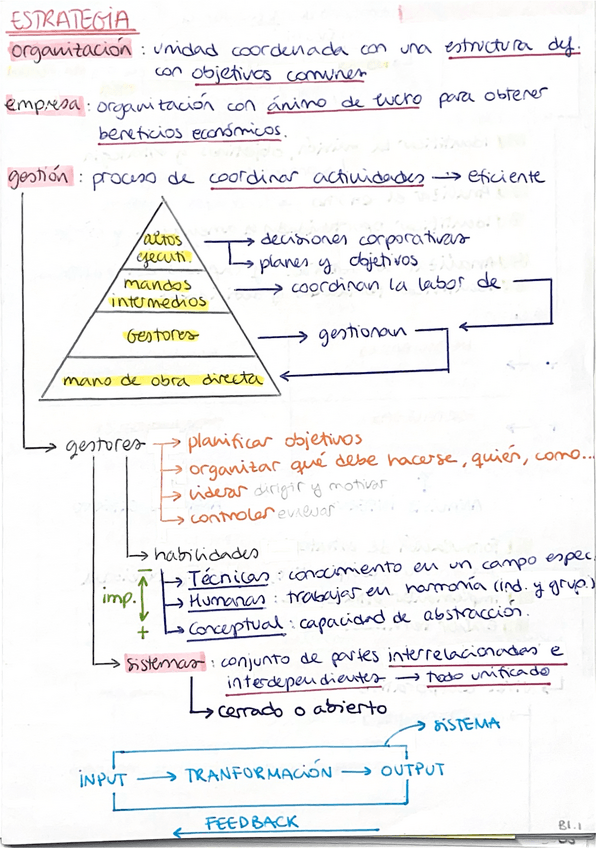 ESTRATEGIA
organización : unidad coordenada con una estructura def.
con objetivos comunes
empresa : organización con ánimo de lucro para obtener
beneficios económicos.
gestión : proceso de coordinar actividades → eficiente
altos
ejecuti.
→ decisiones corporativas
→ planes y objetivos
mandos
intermedios
→ coordinan la labor de
Gestores
→ gestionan
mano de obra directa
gestores → planificar objetivos
→ organizar qué debe hacerse, quién, como...
→ liderar dirigir y motivar
→ controlar evaluar
→ habilidades
imp. - +
→ Técnicas : conocimiento en un campo espec.
→ Humanas : trabajar en harmonía (ind. y grup.)
→ Conceptual : capacidad de abstracción.
→ sistemas : conjunto de partes interrelacionadas e
interdependientes → todo unificado
→ cerrado o abierto
→ SISTEMA
INPUT → TRANFORMACIÓN → OUTPUT
FEEDBACK
B1.1